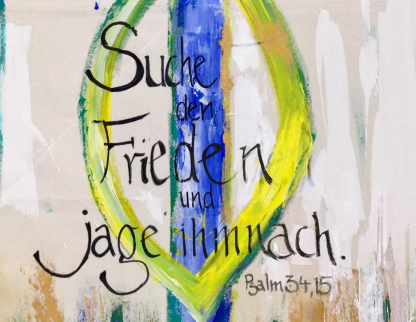 Suche
den
Frieden
und
jage ihm nach.
Psalm 34,15